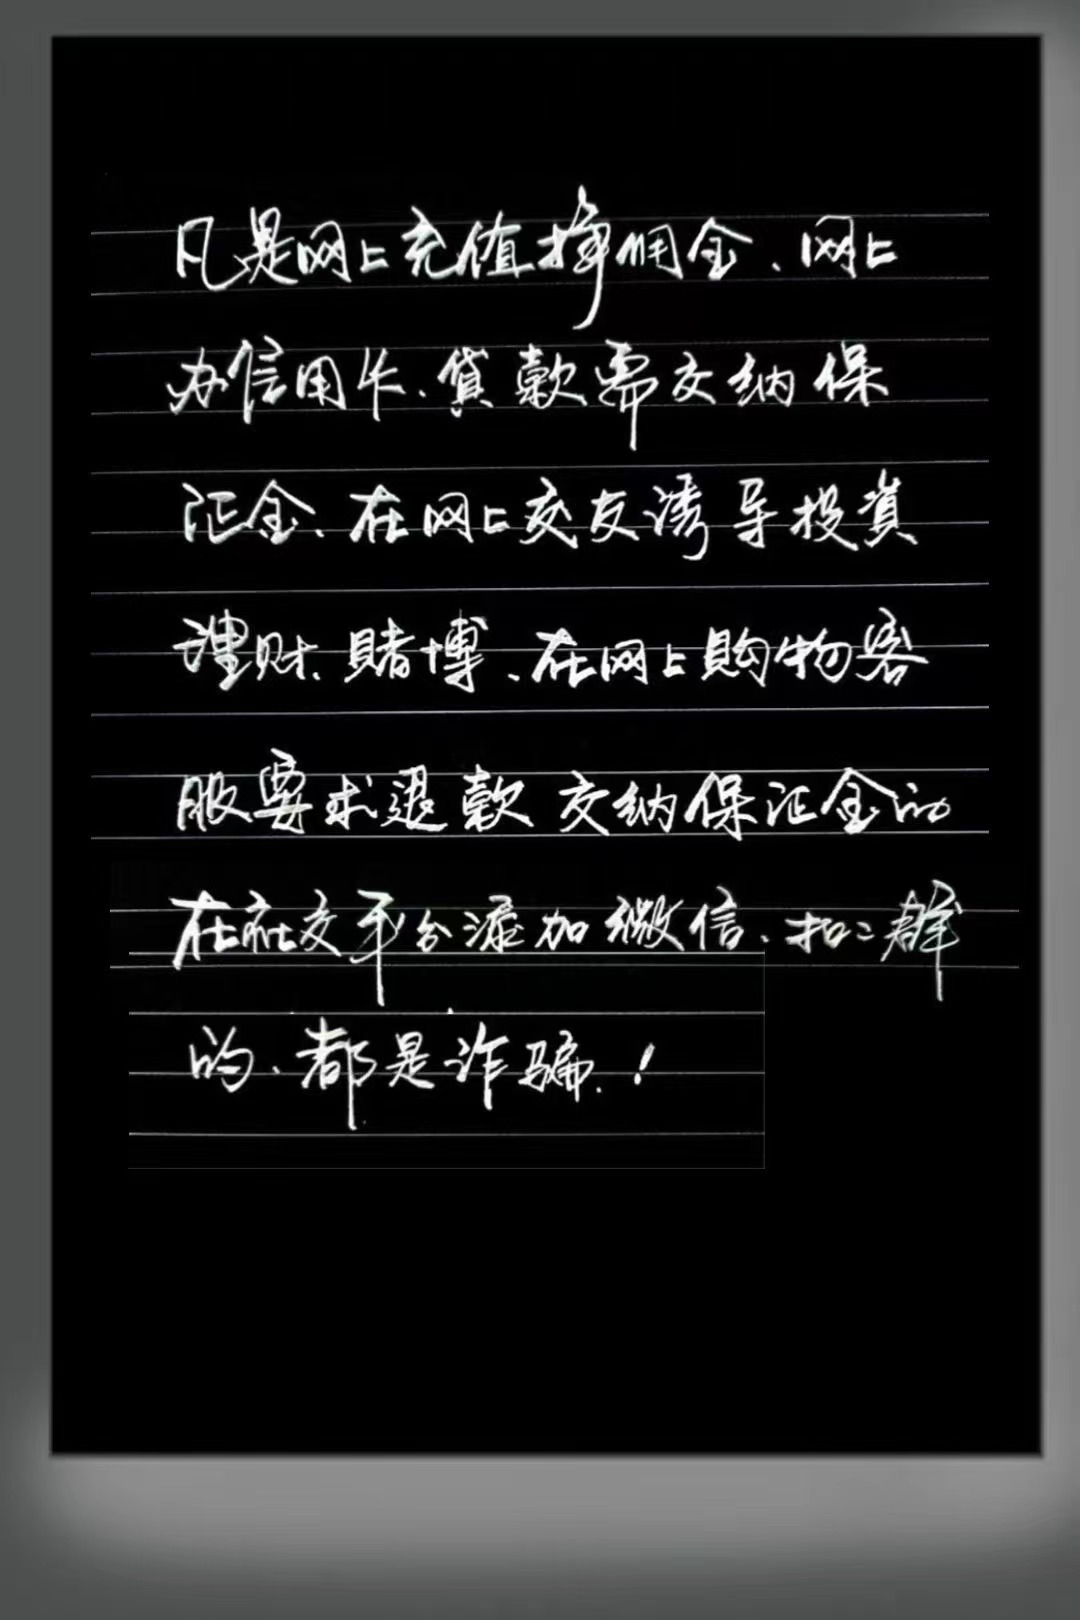 凡是网上充值挣佣金、网上
办信用卡、貸款需交纳保
证金、在网上交友诱导投資
理财、賭博、在网上購物客
服要求退款交纳保证金的
在社交平台添加微信、扣二群
的、都是诈骗.!